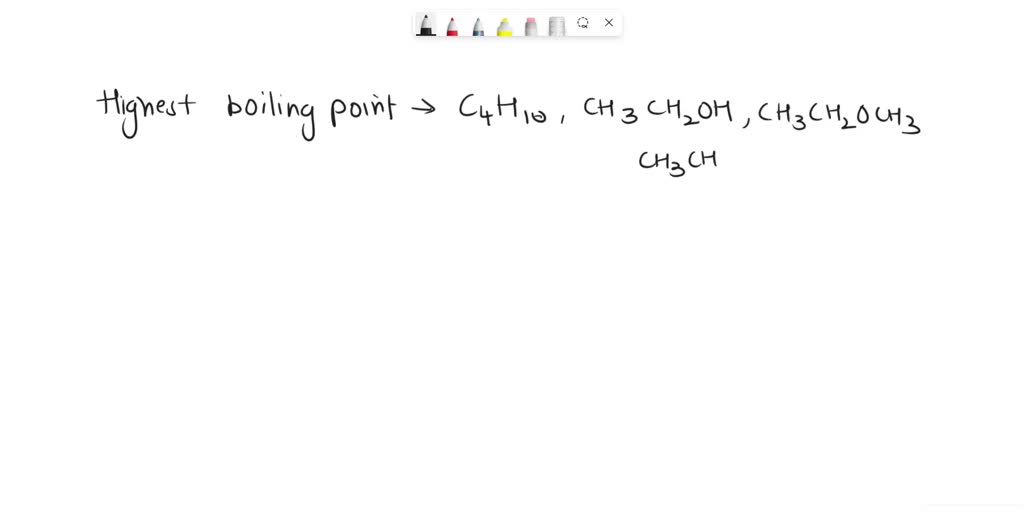 Highest boiling point → C₄H₁₀, CH₃CH₂OH, CH₃CH₂OCH₃
CH₃CH